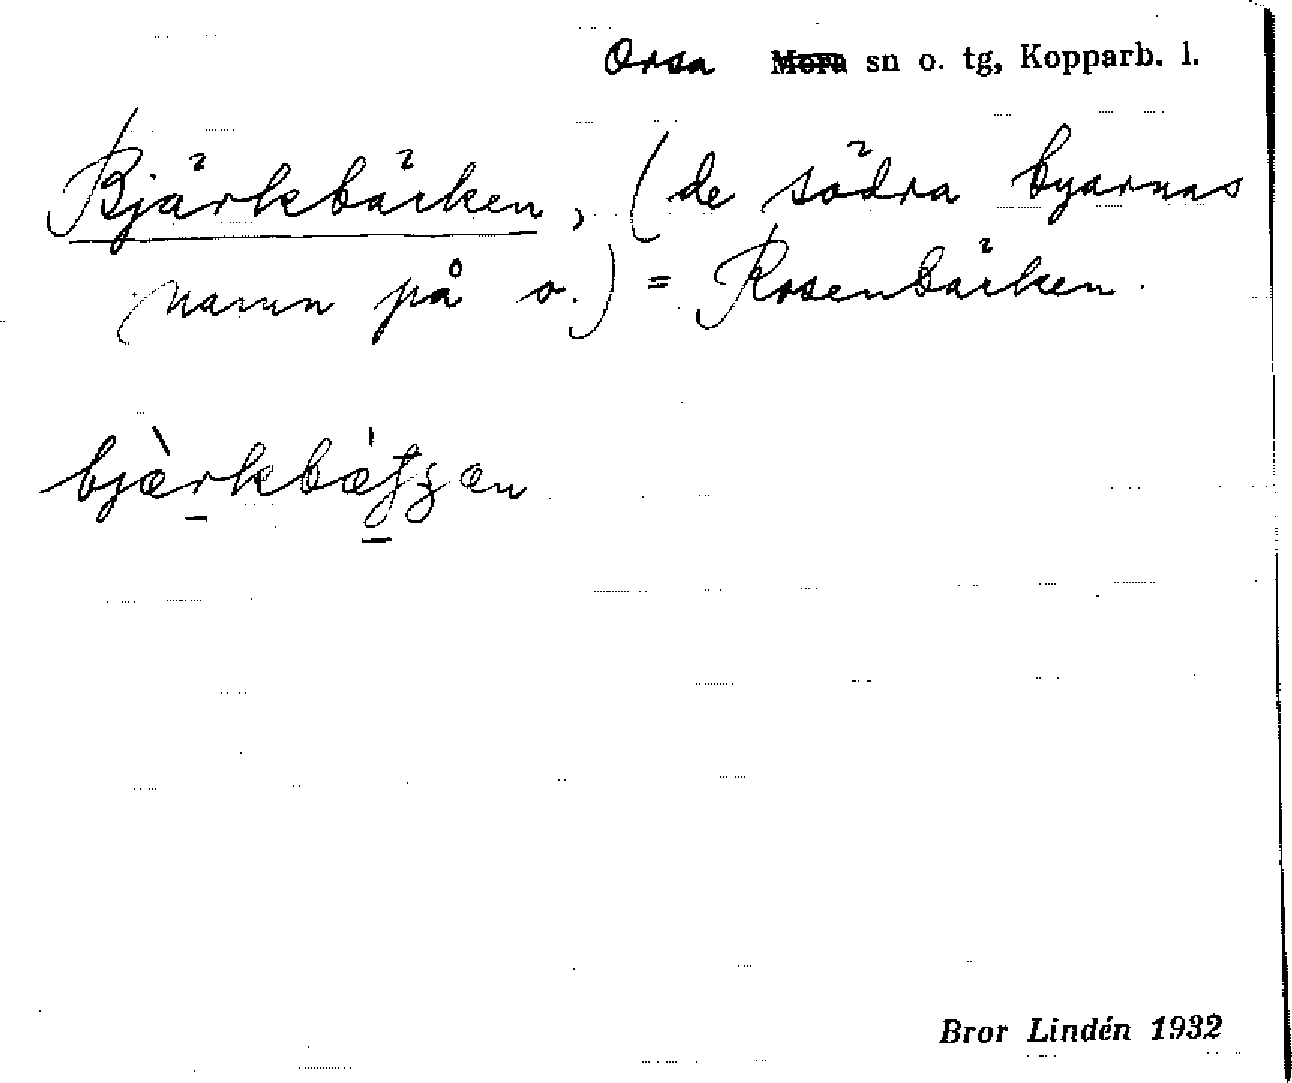 Orsa Mora sn o. tg, Kopparb. l.
Bjärkbäcken, (de södra byarnas
namn på o.) = Rosenbäcken.
Bror Lindén 1932